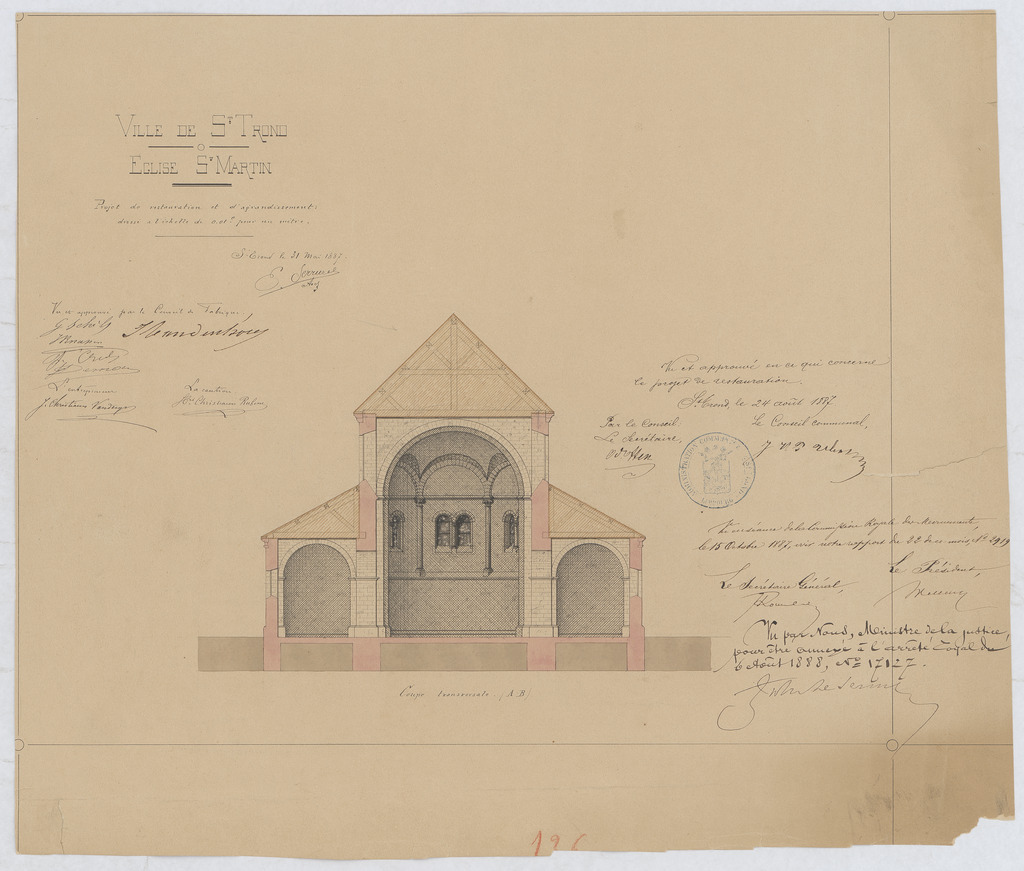 VILLE DE ST TROND
EGLISE ST MARTIN
Projet de restauration et d'agrandissement
dressé à l'échelle de 0.01m pour un mètre.
St Trond le 31 Mai 1887.
E. Serrure
Arch
Vu et approuvé par le Conseil de Fabrique,
L'entrepreneur
La caution
J. Christiaens
Christiaens
Vu et approuvé en ce qui concerne
le projet de restauration.
St Trond, le 24 août 1887
Par le Conseil:
Le Secrétaire,
Le Conseil communal,
ADMINISTRATION COMMUNALE
Vu en séance de la Commission Royale des Monuments,
le 15 Octobre 1887, voir notre rapport du 22 de ce mois, No 2919
Le Secrétaire Général,
Le Président,
Vu par Nous, Ministre de la justice,
pour être annexé à l'arrêté royal du
6 Août 1888, No 17127.
Coupe transversale (A B)
126